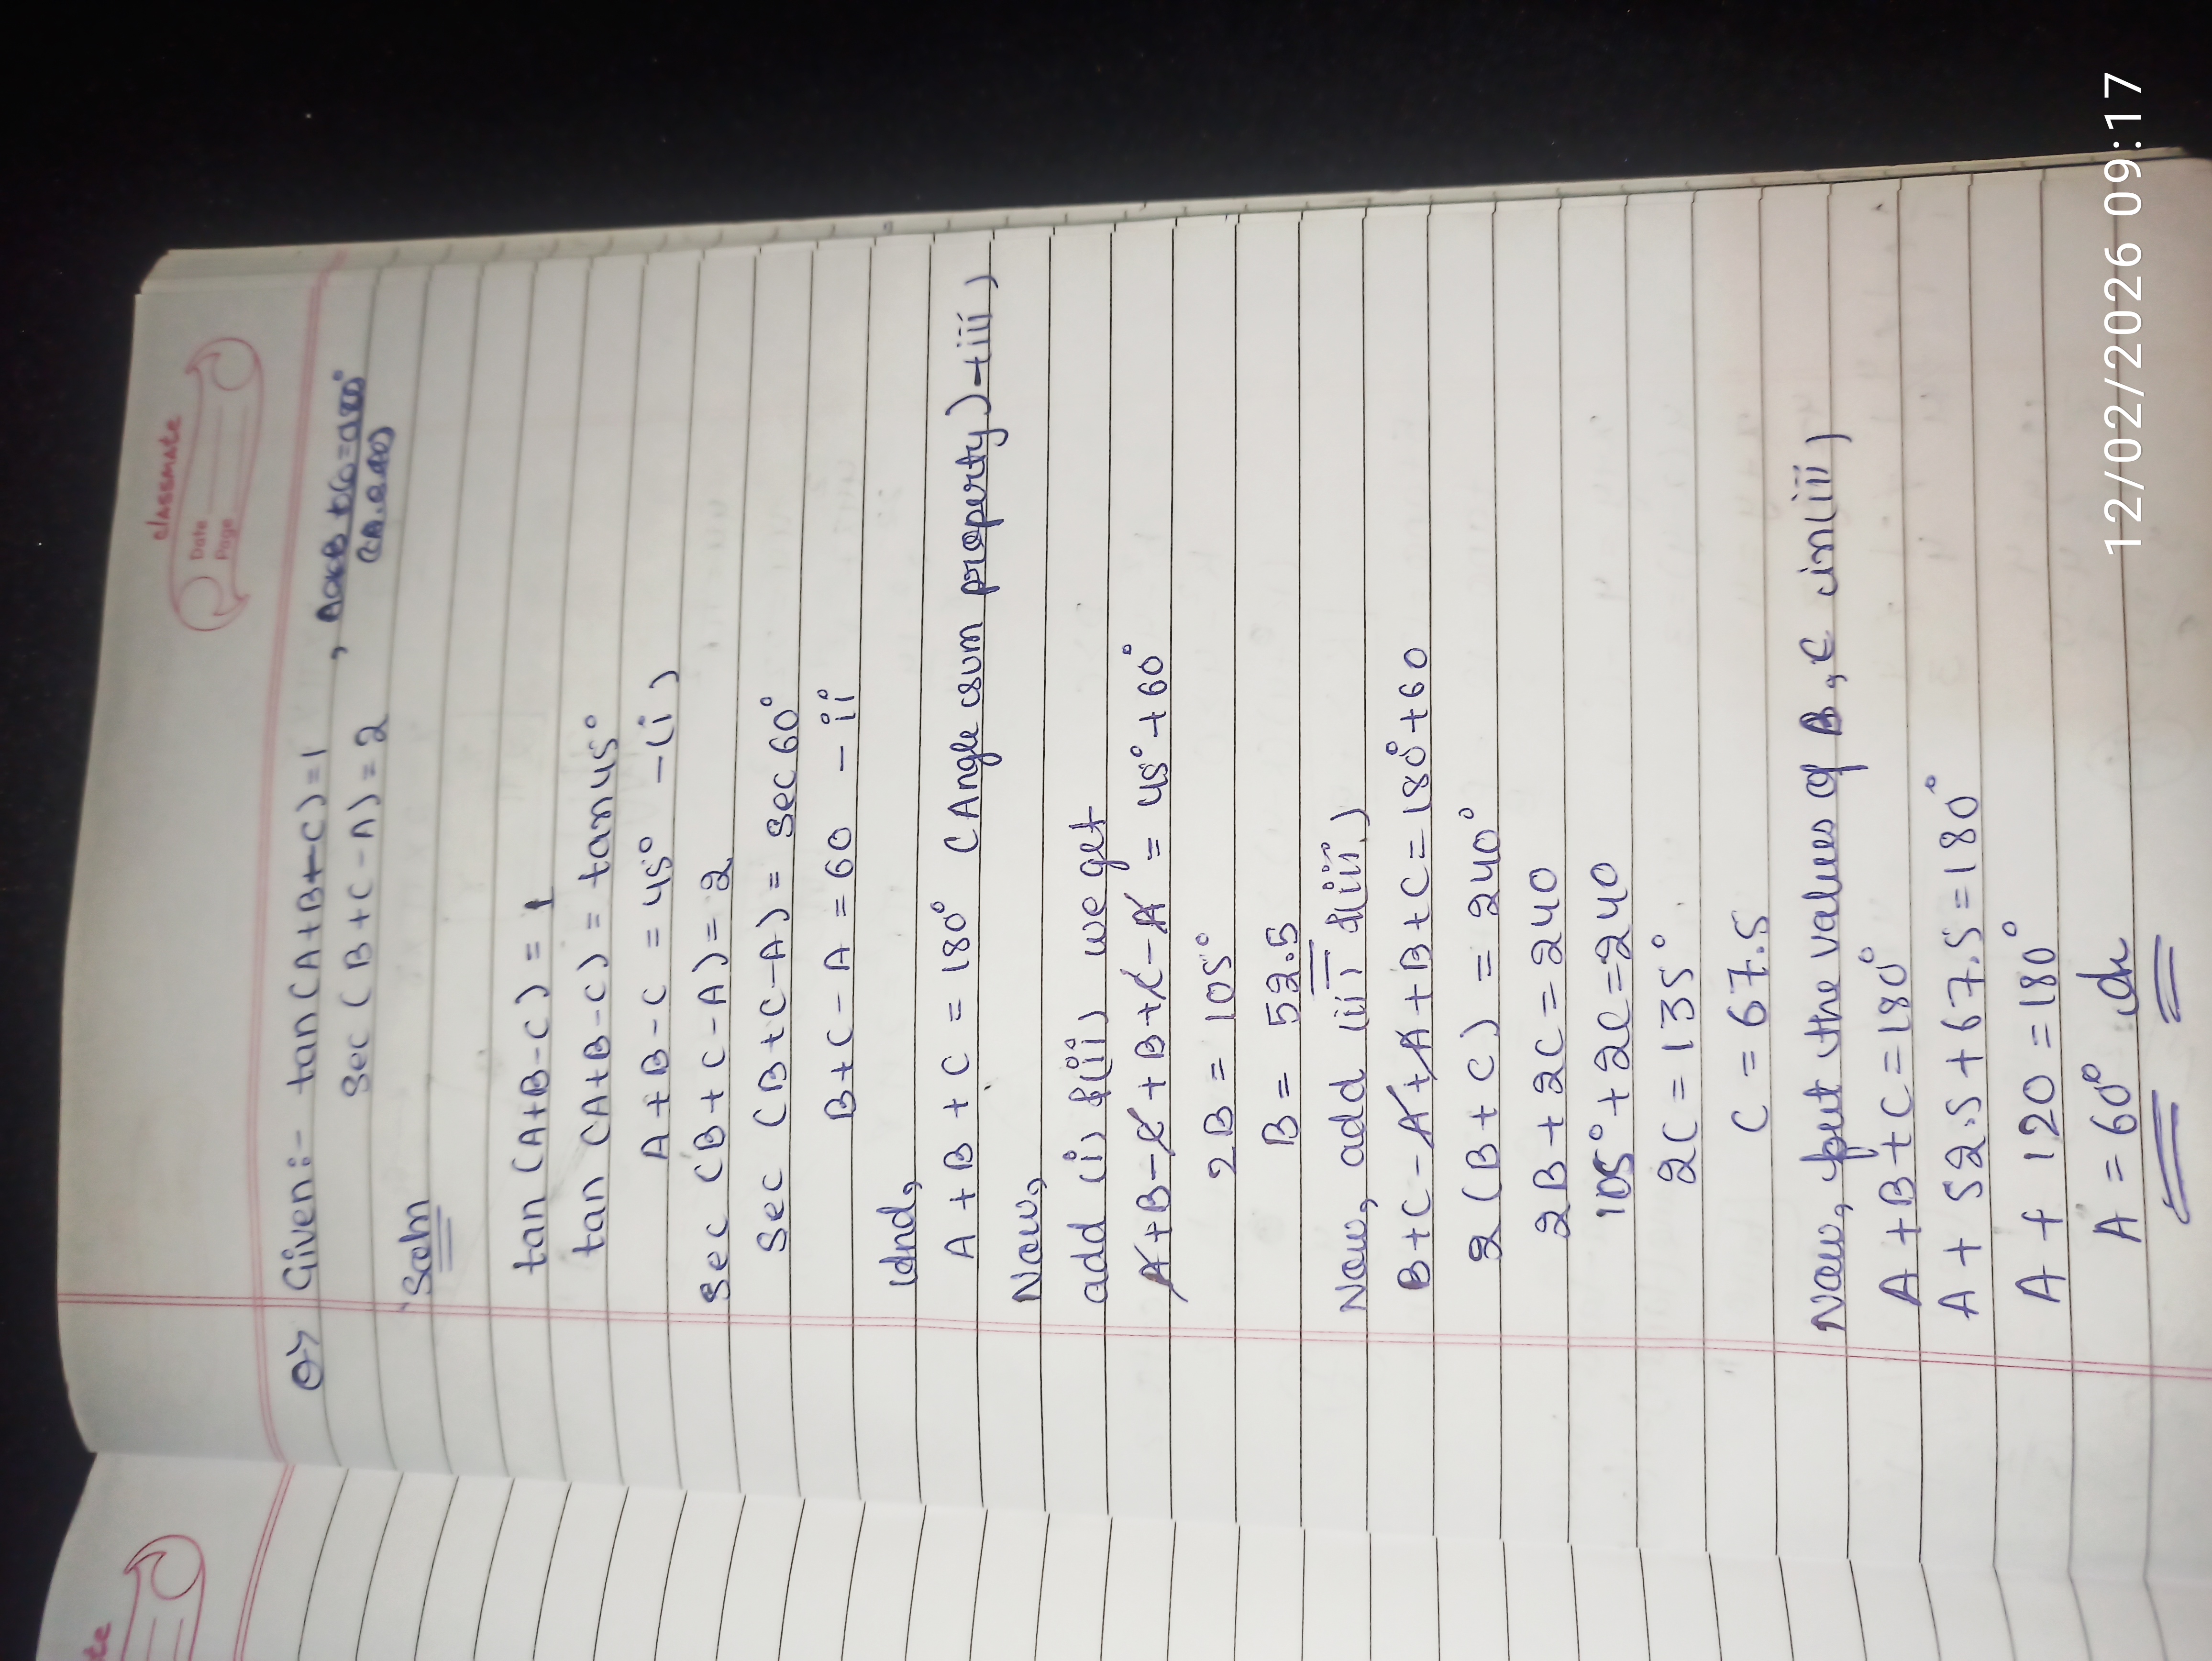 classmate
Date
Page
Q) Given:- tan(A+B-C)=1
Sec(B+C-A)=2
Soln
tan(A+B-C) = 1
tan(A+B-C) = tan45°
A+B-C = 45° -(i)
Sec(B+C-A)=2
Sec(B+C-A) = Sec60°
B+C-A=60 -ii
And,
A+B+C = 180° (Angle sum property)-(iii)
Now,
add (i) &(ii) we get
A+B-C+B+C-A = 45°+60°
2B = 105°
B = 52.5
Now, add (ii) &(iii)
B+C-A+A+B+C=180°+60
2(B+C) = 240°
2B+2C=240
105°+2C=240
2C=135°
C=67.5
Now, put the values of B,C in(iii)
A+B+C=180°
A+52.5+67.5=180°
A+120=180°
A=60°
12/02/2026 09:17
te